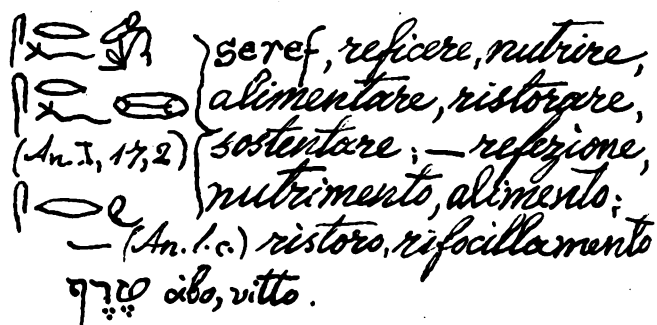 seref, reficere, nutrire,
alimentare, ristorare,
(An. I, 17, 2) sostentare; — refezione,
nutrimento, alimento;
— (An. l. c.) ristoro, rifocillamento
טֶרֶף cibo, vitto.